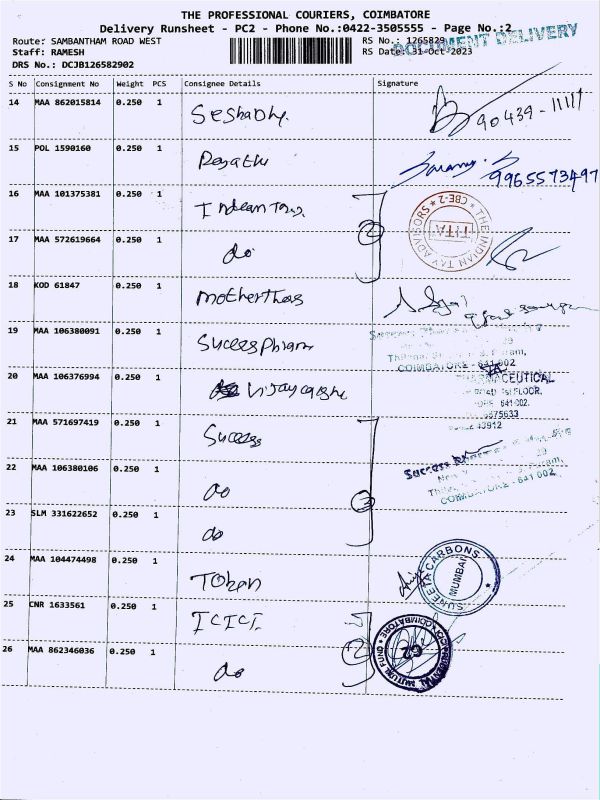 THE PROFESSIONAL COURIERS, COIMBATORE
Delivery Runsheet - PC2 - Phone No.:0422-3505555 - Page No.:2
DOCUMENT DELIVERY
Route: SAMBANTHAM ROAD WEST RS No.: 1265829
Staff: RAMESH RS Date: 31-Oct-2023
DRS No.: DCJB126582902
S No Consignment No Weight PCS Consignee Details Signature
14 MAA 862015814 0.250 1 Seshadhri 90439-11111
15 POL 1590160 0.250 1
9965573497
16 MAA 101375381 0.250 1 Indian Tax
THE INDIAN TAX ADVISORS ★ CBE-2 ★ TITA
17 MAA 572619664 0.250 1 do 2
18 KOD 61847 0.250 1
19 MAA 106380091 0.250 1
COIMBATORE - 641 002
20 MAA 106376994 0.250 1
PHARMACEUTICAL
FLOOR,
641 002.
21 MAA 571697419 0.250 1 Success
Success
22 MAA 106380106 0.250 1 do 3
COIMBATORE - 641 002
23 SLM 331622652 0.250 1 do
24 MAA 104474498 0.250 1
SUNEETA CARBONS MUMBAI
25 CNR 1633561 0.250 1 ICICI
26 MAA 862346036 0.250 1 do 2